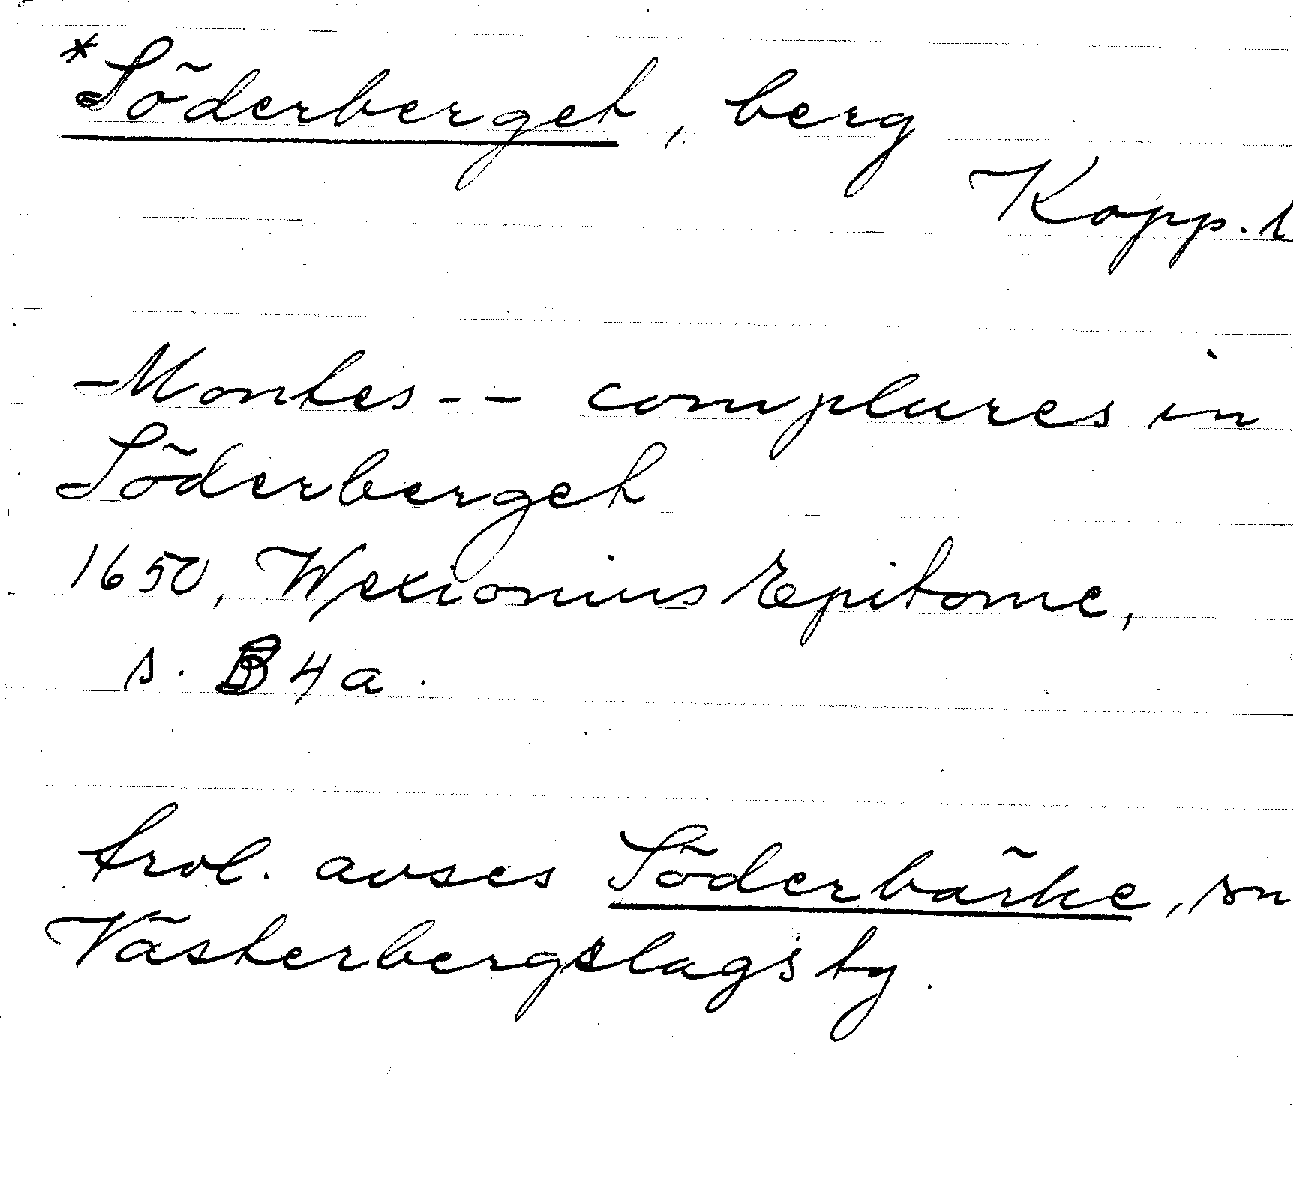 *Söderberget, berg
Kopp. l
-Montes -- complures in
Söderberget
1650, Wexionius Epitome,
s. B4a.
trol. avses Söderbärke, sn
Västerbergslags tg.